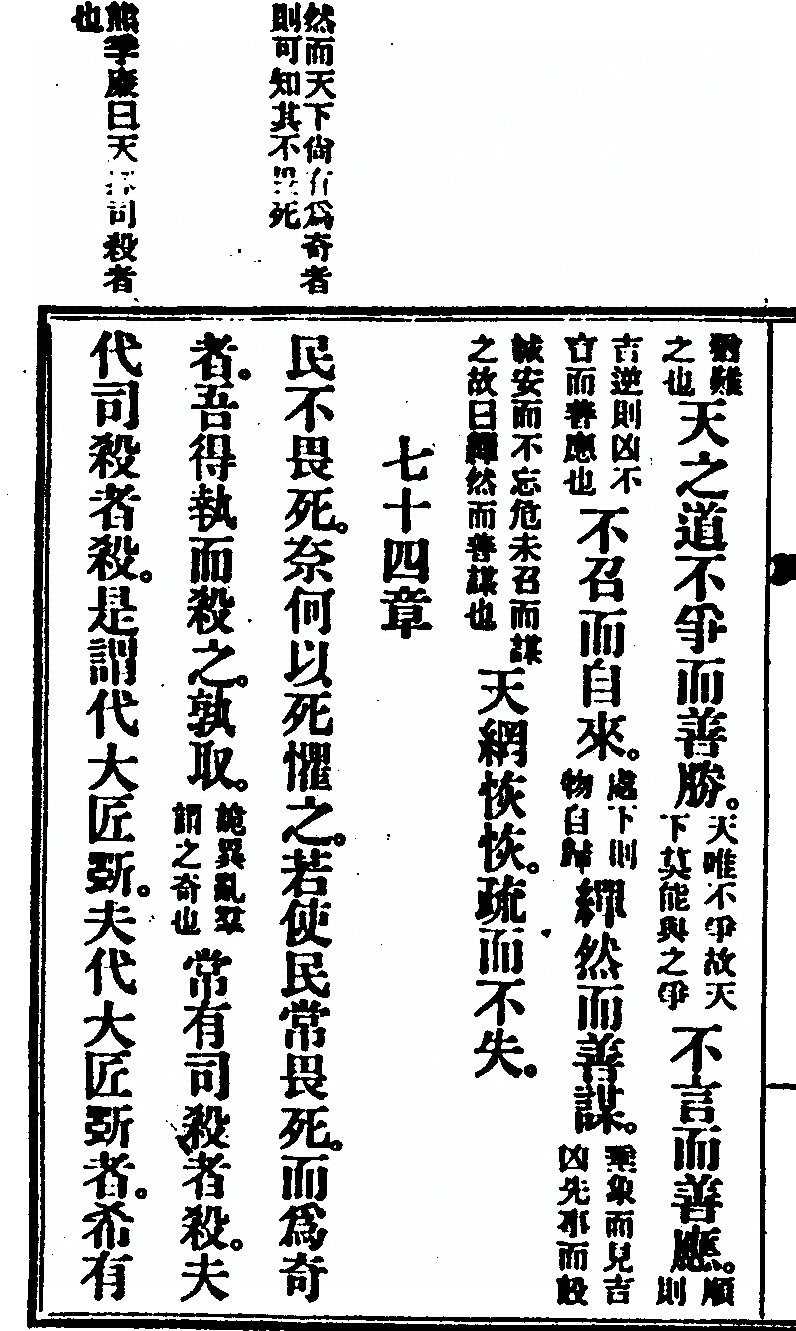 然而天下尙有爲奇者
則可知其不畏死
熊季廉曰天
司殺者
也
猶難
之也
天之道不爭而善勝。
天唯不爭故天
下莫能與之爭
不言而善應。
順
則
吉逆則凶不
言而善應也
不召而自來。
處下則
物自歸
繟然而善謀。
垂象而見吉
凶先事而設
誠安而不忘危未召而謀
之故曰繟然而善謀也
天網恢恢。疏而不失。
七十四章
民不畏死。奈何以死懼之。若使民常畏死。而爲奇
者。吾得執而殺之。孰取。
詭異亂羣
謂之奇也
常有司殺者殺。夫
代司殺者殺。是謂代大匠斲。夫代大匠斲者。希有